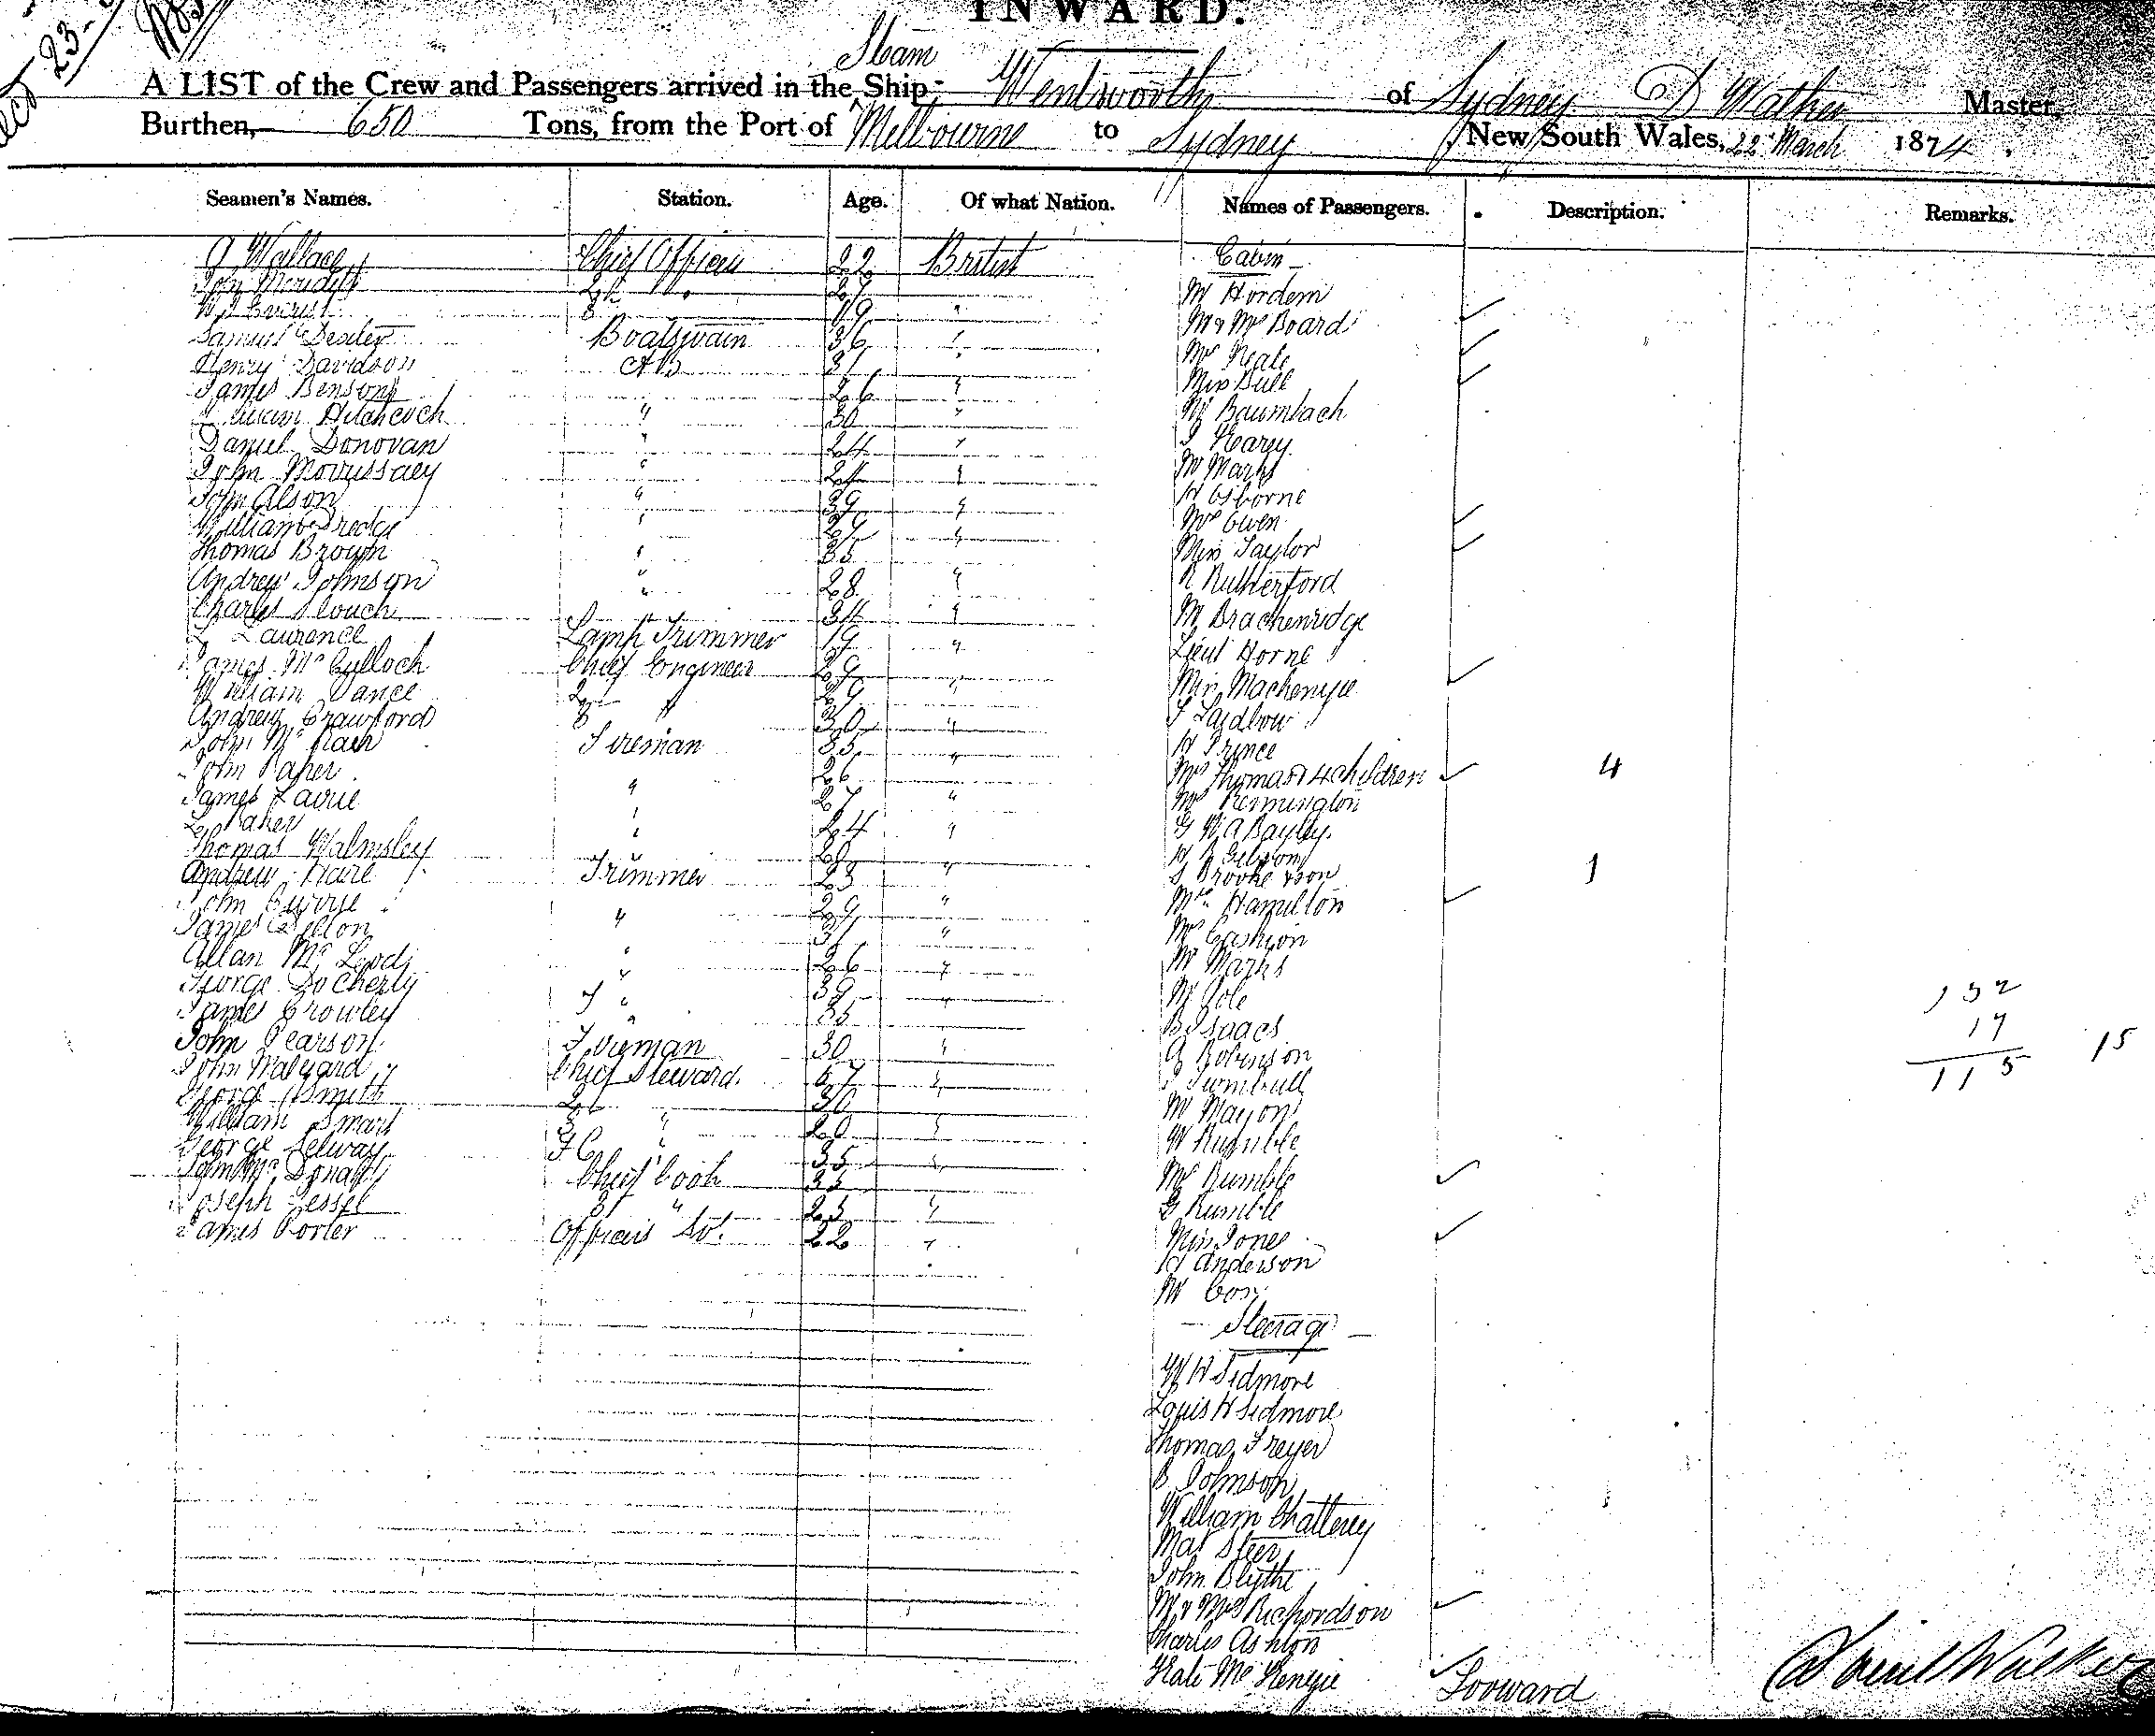 INWARD.
Steam
A LIST of the Crew and Passengers arrived in the Ship Wentworth of Sydney D Walker Master,
Burthen, 650 Tons, from the Port of Melbourne to Sydney New South Wales, 22 March 1874.
Seamen's Names. Station. Age. Of what Nation. Names of Passengers. Description. Remarks.
A Wallace Chief Officer 22 British Cabin
John Meridith 2d " 27 Mr Hordern
19 " Mr & Mrs Board
Samuel Dexter Boatswain 36 " Mrs Neale
Henry Davidson AB 31 " Miss Bull
James Benson 26 " Mr Baumbach
William Hitchcock " 30 "
Daniel Donovan " 24 " Mr Marks
John Morrissaey " 24 " H Osborne
John Alson " 39 " Mrs Owen
William Dredge " 27 " Miss Taylor
Thomas Brown " 35 " R Rutherford
Andrew Johnson " 28 " Mr Brackenridge
Charles Slouch " 34 " Lieut Horne
L Laurence Lamp Trimmer 19 " Miss Mackenzie
James McCulloch Chief Engineer 29 " Laidlow
William Dance 2 " 29 " H Prince
Andrew Crawford 3 30 " Mrs Thomas & 4 children 4
John Fireman 35 " Mrs Remington
John Baker 26 G W A Bayley
James Lavrie " 27 " H B Gibson
L Baker " 24 " S Brooke & son 1
Thomas Walmsley " 20 Mrs Hamilton
Andrew Hare Trimmer 23 " Mrs Cashion
John Currie 29 " Mr Marks
James Dillon " 31 " Mr Cole
Allan McLeod " 26 " B Isaacs
George Docherty " 39 " A Robinson
James Crowley " 35 Turnbull
John Pearson Fireman 30 " Mr Mayon
John Chief Steward 57 " W Rumble
George Smith 2d " 30 Mrs Rumble
William Smart 3 " 20 " G Rumble
George Selway F C " 35 " Miss Jones
John McDonall Chief Cook 33 H Anderson
Joseph Tessel 2 " 23 " Mr Cox
James Porter Officers St. 22 "
132
17
115 15
Steerage
W H Sidmore
Louis H Sidmore
Thomas Freyer
B Johnson
William Chatterey
Mat Steer
John Blythe
Mr & Mrs Richordson
Charles Ashton
Kate McKenzie
Forward